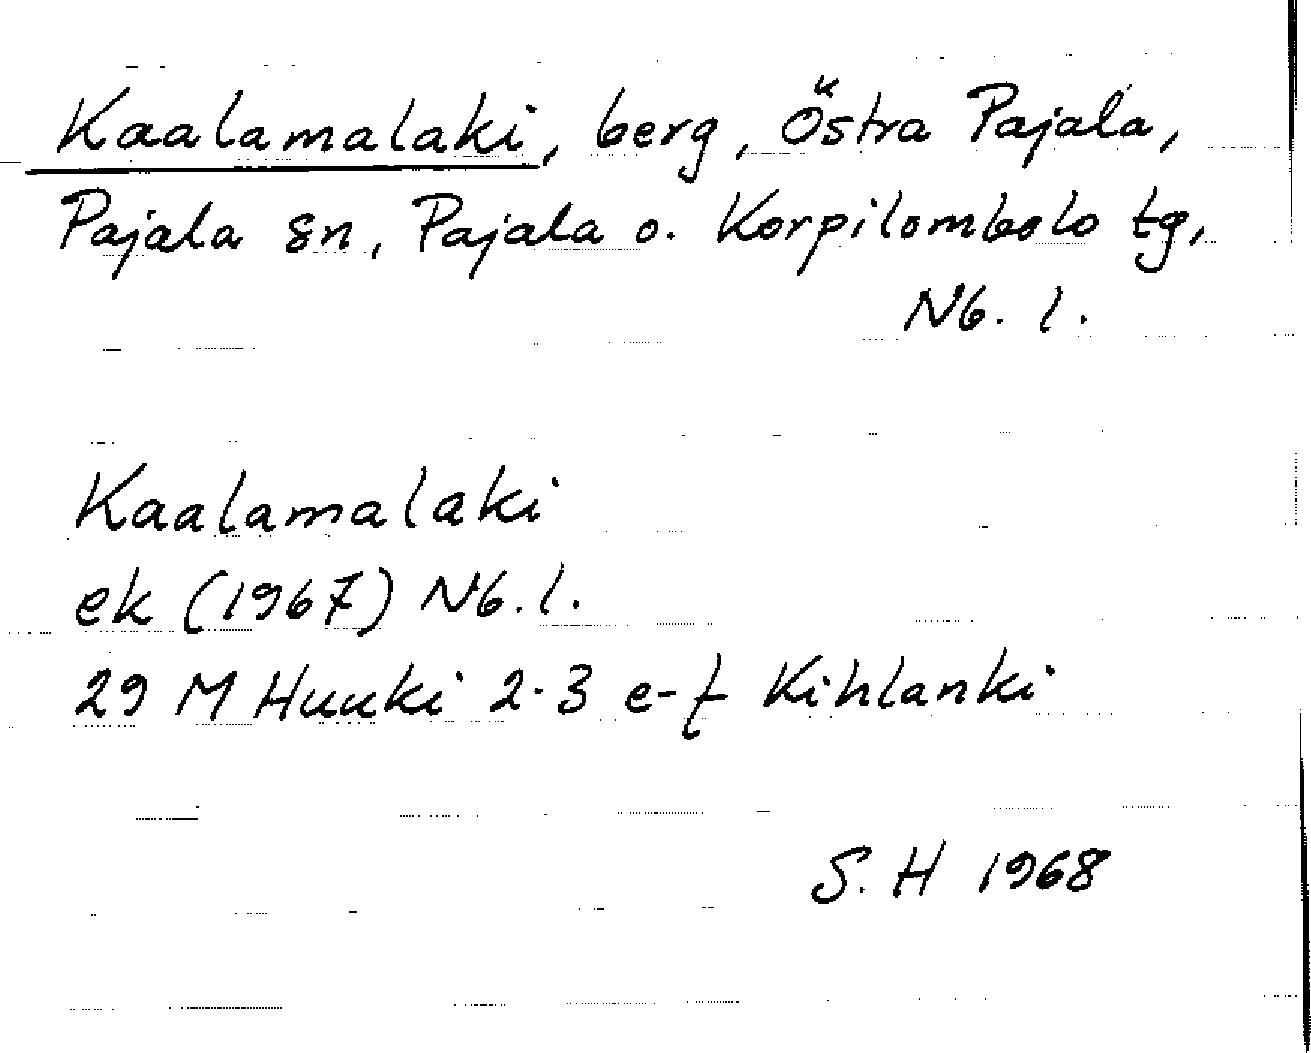 Kaalamalaki, berg, Östra Pajala,
Pajala sn, Pajala o. Korpilombolo tg,
Nb. l.
Kaalamalaki
ek (1967) Nb. l.
29 M Huuki 2-3 e-f Kihlanki
S. H 1968